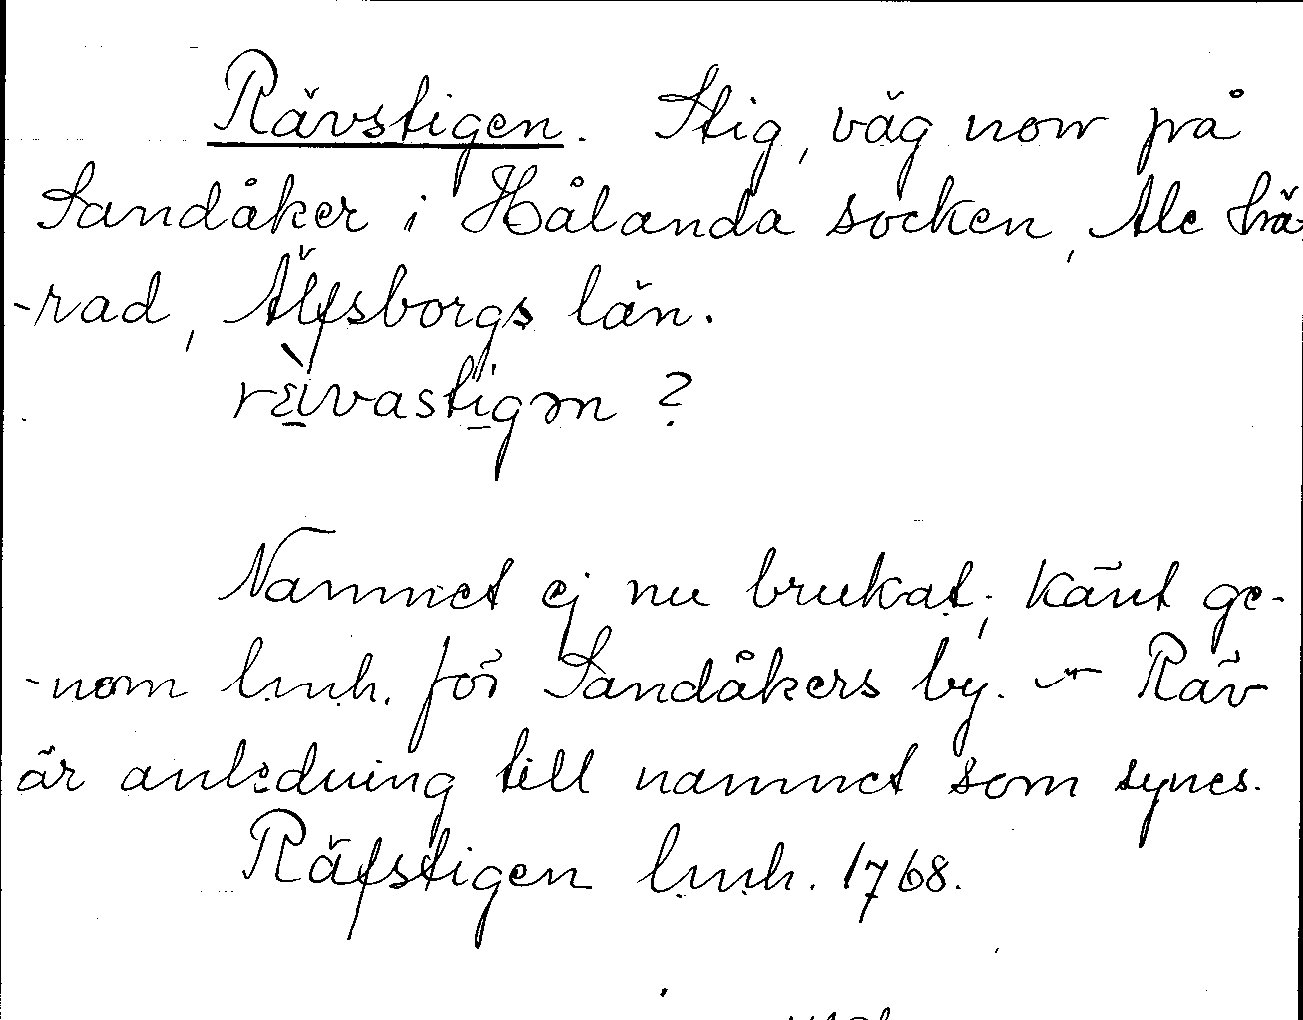 Rävstigen. Stig, väg norr på
Sandåker i Hålanda socken, Ale hä-
-rad, Älfsborgs län.
rävastigən ?
Namnet ej nu brukat; känt ge-
-nom l.m.h. för Sandåkers by. — Räv
är anledning till namnet som synes.
Räfstigen l.m.h. 1768.